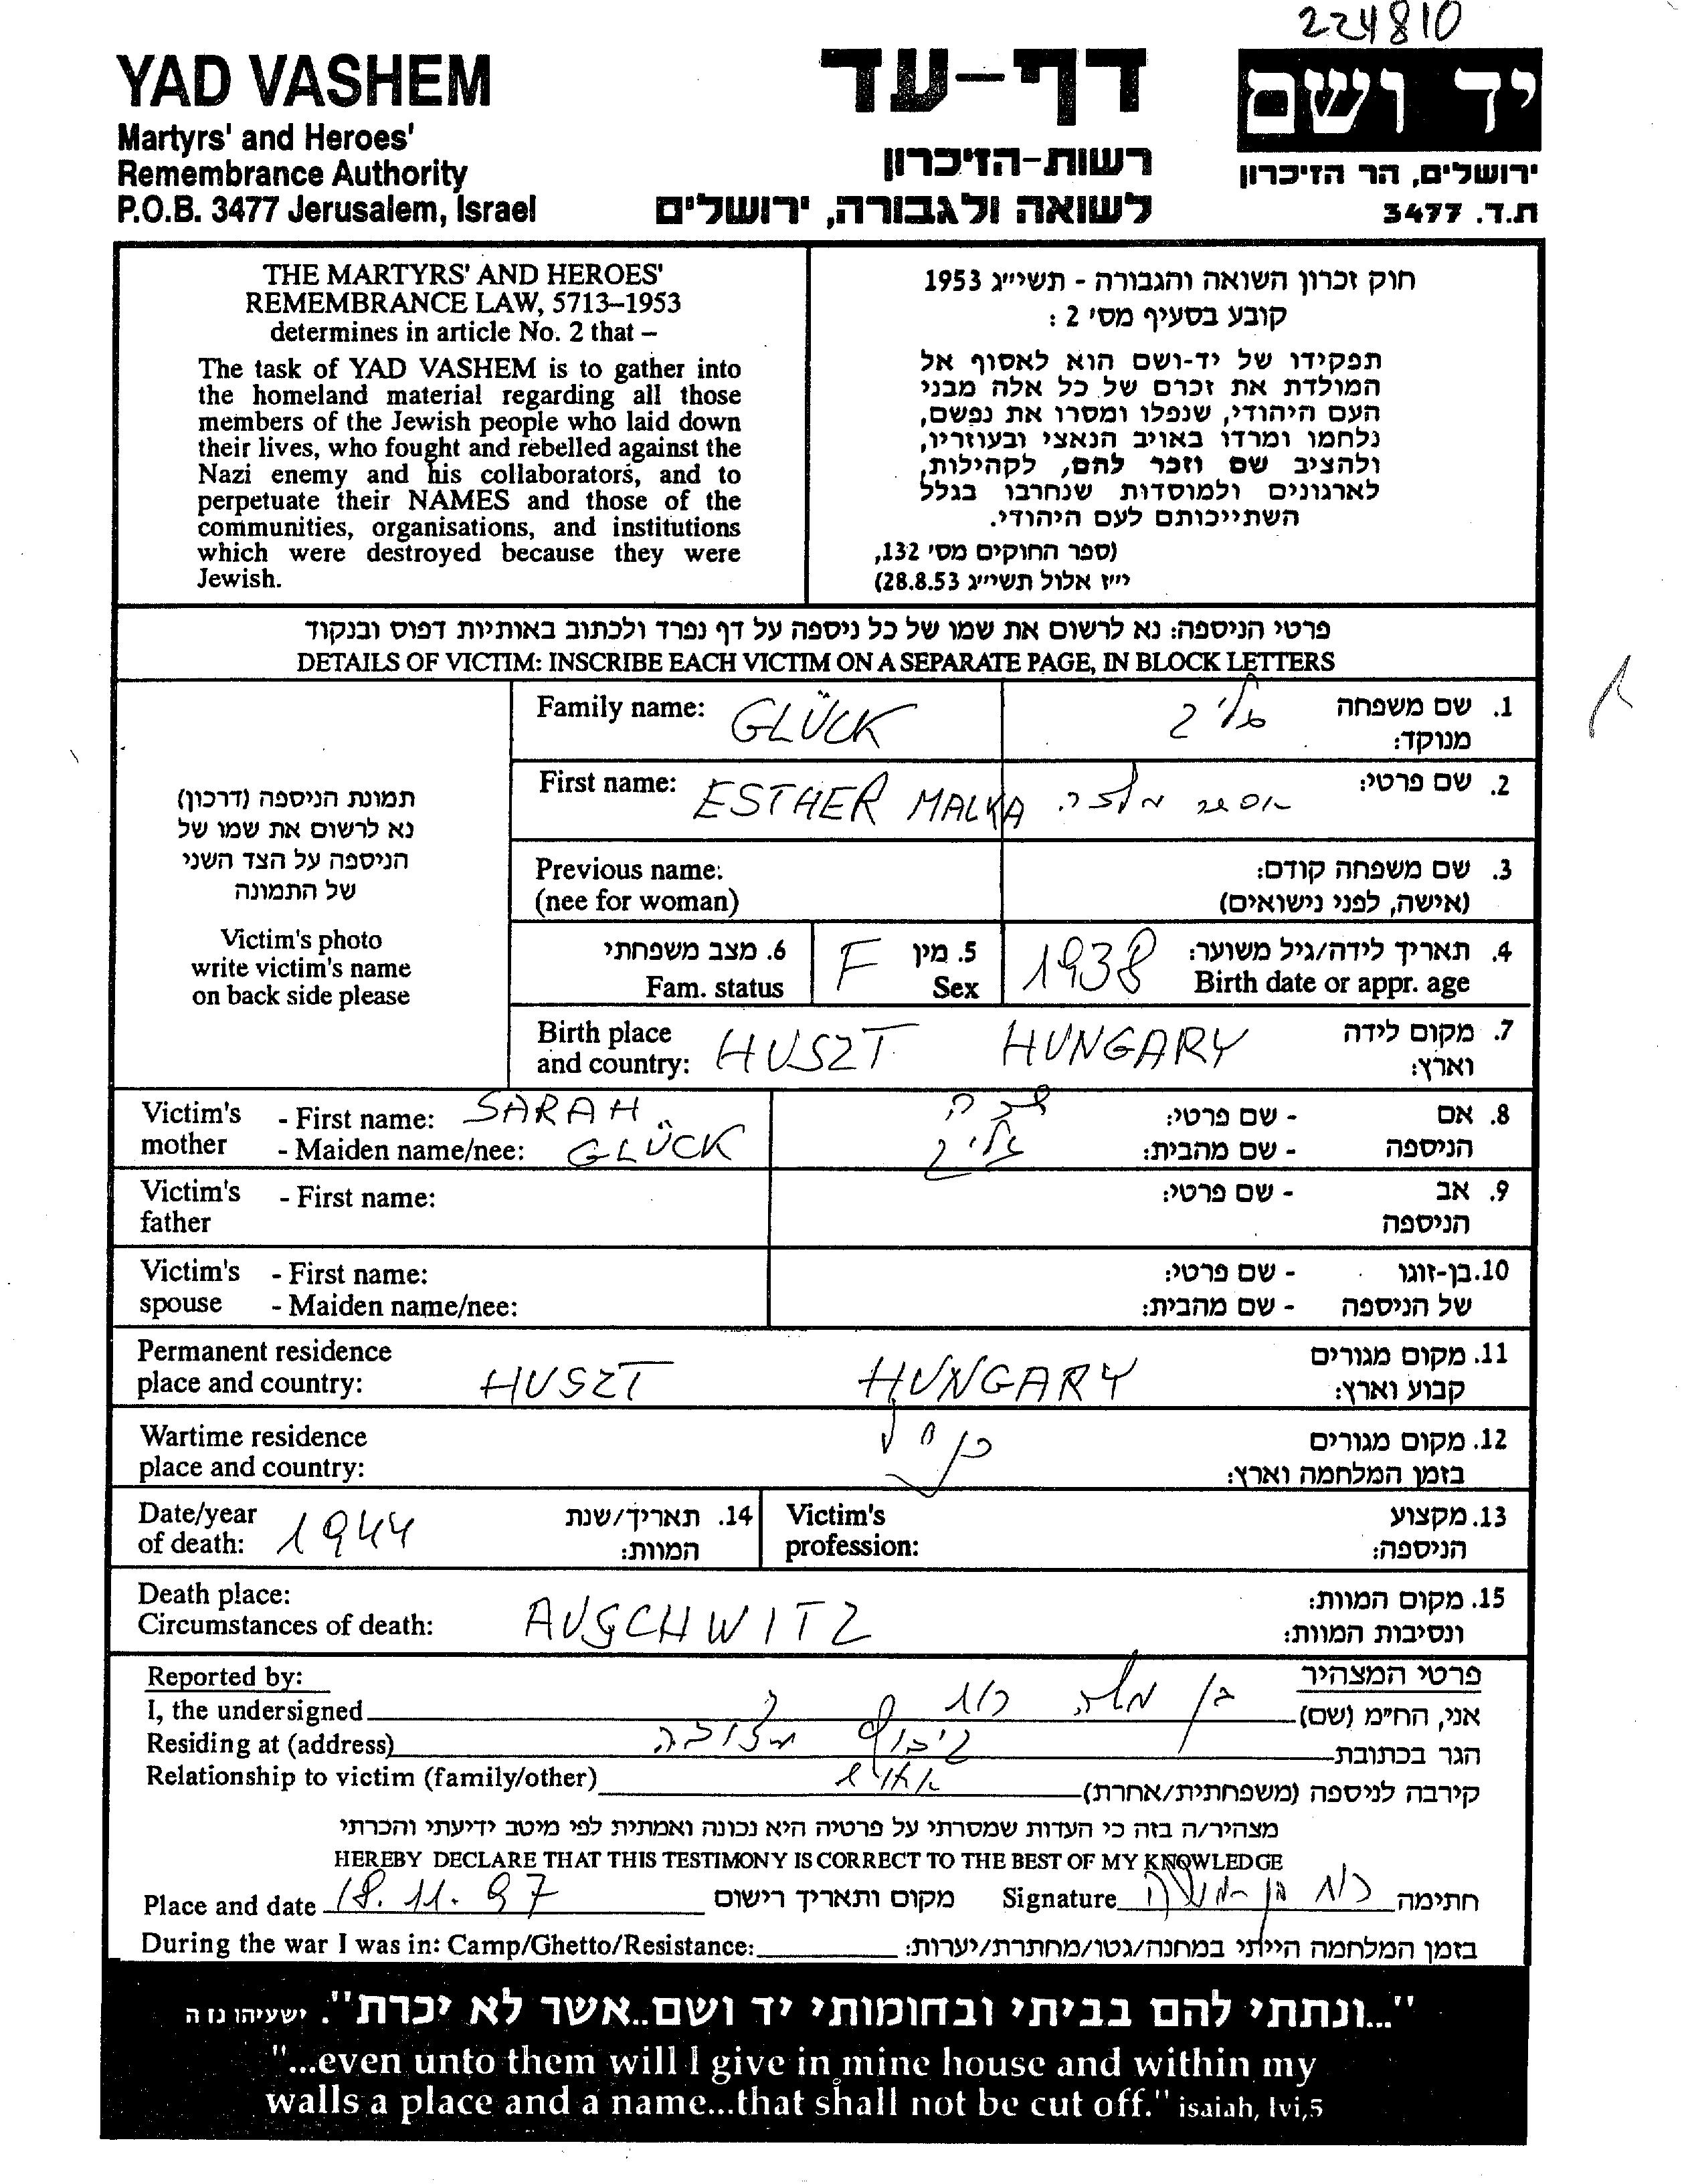 224810
YAD VASHEM
Martyrs' and Heroes'
Remembrance Authority
P.O.B. 3477 Jerusalem, Israel
דף-עד
רשות-הזיכרון
לשואה ולגבורה, ירושלים
יד ושם
ירושלים, הר הזיכרון
ת.ד. 3477
THE MARTYRS' AND HEROES'
REMEMBRANCE LAW, 5713–1953
determines in article No. 2 that –
The task of YAD VASHEM is to gather into
the homeland material regarding all those
members of the Jewish people who laid down
their lives, who fought and rebelled against the
Nazi enemy and his collaborators, and to
perpetuate their NAMES and those of the
communities, organisations, and institutions
which were destroyed because they were
Jewish.
חוק זכרון השואה והגבורה - תשי״ג 1953
קובע בסעיף מס׳ 2 :
תפקידו של יד-ושם הוא לאסוף אל
המולדת את זכרם של כל אלה מבני
העם היהודי, שנפלו ומסרו את נפשם,
נלחמו ומרדו באויב הנאצי ובעוזריו,
ולהציב שם וזכר להם, לקהילות,
לארגונים ולמוסדות שנחרבו בגלל
השתייכותם לעם היהודי.
(ספר החוקים מס׳ 132,
י״ז אלול תשי״ג 28.8.53)
פרטי הניספה: נא לרשום את שמו של כל ניספה על דף נפרד ולכתוב באותיות דפוס ובנקוד
DETAILS OF VICTIM: INSCRIBE EACH VICTIM ON A SEPARATE PAGE, IN BLOCK LETTERS
תמונת הניספה (דרכון)
נא לרשום את שמו של
הניספה על הצד השני
של התמונה
Victim's photo
write victim's name
on back side please
Family name: GLÜCK גליק 1. שם משפחה
מנוקד:
First name: ESTHER MALKA אסתר מלכה 2. שם פרטי:
Previous name: 3. שם משפחה קודם:
(nee for woman) (אישה, לפני נישואים)
6. מצב משפחתי F 5. מין 1938 4. תאריך לידה/גיל משוער:
Fam. status Sex Birth date or appr. age
Birth place HUSZT HUNGARY 7. מקום לידה
and country: וארץ:
Victim's - First name: SARAH שרה - שם פרטי: 8. אם
mother - Maiden name/nee: GLÜCK גליק - שם מהבית: הניספה
Victim's - First name: - שם פרטי: 9. אב
father הניספה
Victim's - First name: - שם פרטי: 10. בן-זוגו
spouse - Maiden name/nee: - שם מהבית: של הניספה
Permanent residence 11. מקום מגורים
place and country: HUSZT HUNGARY קבוע וארץ:
Wartime residence 12. מקום מגורים
place and country: בזמן המלחמה וארץ:
Date/year 1944 14. תאריך/שנת Victim's 13. מקצוע
of death: המוות: profession: הניספה:
Death place: 15. מקום המוות:
Circumstances of death: AUSCHWITZ ונסיבות המוות:
Reported by: פרטי המצהיר
I, the undersigned רות בן משה אני, הח״מ (שם)
Residing at (address) הגר בכתובת
Relationship to victim (family/other) קירבה לניספה (משפחתית/אחרת)
מצהיר/ה בזה כי העדות שמסרתי על פרטיה היא נכונה ואמתית לפי מיטב ידיעתי והכרתי
HEREBY DECLARE THAT THIS TESTIMONY IS CORRECT TO THE BEST OF MY KNOWLEDGE
Place and date 18.11.97 מקום ותאריך רישום Signature רות בן-משה חתימה
During the war I was in: Camp/Ghetto/Resistance: בזמן המלחמה הייתי במחנה/גטו/מחתרת/יערות:
"...ונתתי להם בביתי ובחומותי יד ושם..אשר לא יכרת". ישעיהו נו ה
"...even unto them will I give in mine house and within my
walls a place and a name...that shall not be cut off." isaiah, lvi,5